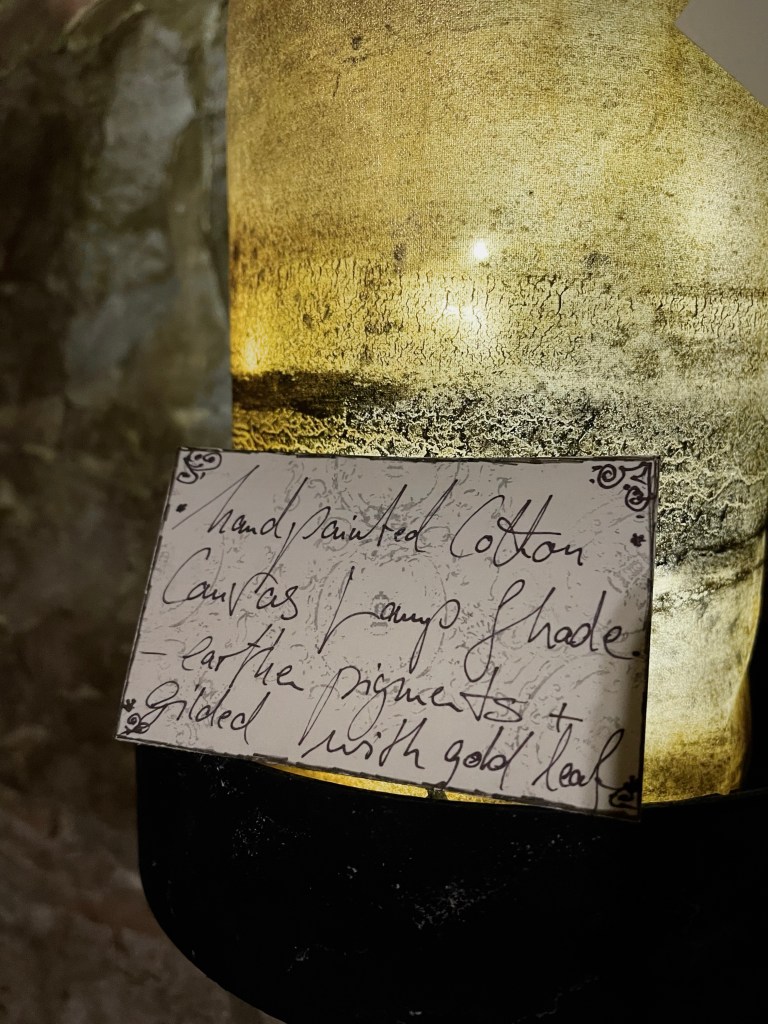 handpainted Cotton
Canvas Lamp Shade.
- earthen pigments +
gilded with gold leaf